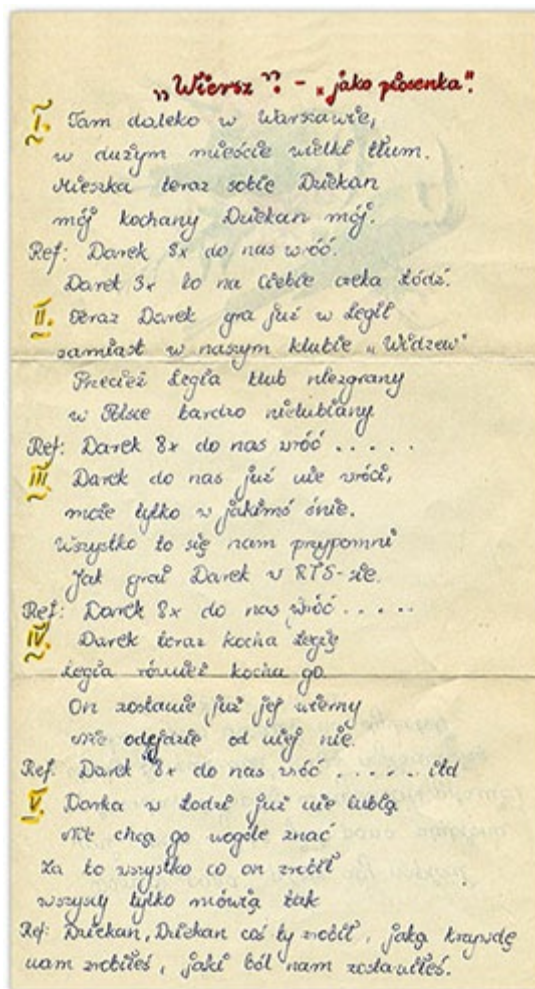 „Wiersz”: - „jako piosenka”.
I. Tam daleko w Warszawie,
w dużym mieście wielki tłum.
Mieszka teraz sobie Dziekan
mój kochany Dziekan mój.
Ref: Darek 8x do nas wróć.
Darek 3x bo na Ciebie czeka Łódź.
II. Teraz Darek gra już w Legii
zamiast w naszym klubie „Widzew”
Przecież Legia klub niezgrany
w Polsce bardzo nielubiany
Ref: Darek 8x do nas wróć . . . . .
III. Darek do nas już nie wróci,
może tylko w jakimś śnie.
Wszystko to się nam przypomni
Jak grał Darek w RTS-ie.
Ref: Darek 8x do nas wróć . . . . .
IV. Darek teraz kocha Legię
Legia również kocha go.
On zostanie już jej wierny
nie odejdzie od niej nie.
Ref: Darek 8x do nas wróć . . . . . . itd
V. Darka w Łodzi już nie lubią
Nie chcą go wogóle znać
Za to wszystko co on zrobił
wszyscy tylko mówią tak
Ref: Dziekan, Dziekan coś ty zrobił, jaką krzywdę
nam zrobiłeś, jaki ból nam zostawiłeś.